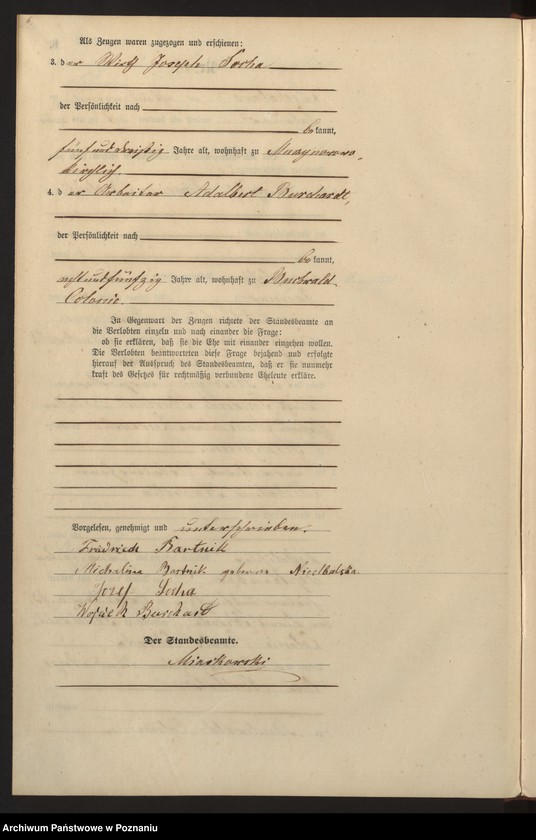 Als Zeugen waren zugezogen und erschienen:
3. der Wirth Joseph Socha
der Persönlichkeit nach
bekannt,
fünfunddreißig Jahre alt, wohnhaft zu
kirchlich.
4. der Arbeiter Adalbert Burchardt,
der Persönlichkeit nach
bekannt,
achtundfünfzig Jahre alt, wohnhaft zu Buchwald
Colonie.
In Gegenwart der Zeugen richtete der Standesbeamte an
die Verlobten einzeln und nach einander die Frage:
ob sie erklären, daß sie die Ehe mit einander eingehen wollen.
Die Verlobten beantworteten diese Frage bejahend und erfolgte
hierauf der Ausspruch des Standesbeamten, daß er sie nunmehr
kraft des Gesetzes für rechtmäßig verbundene Eheleute erkläre.
Vorgelesen, genehmigt und unterschrieben.
Friedrich Bartnik
Michalina Bartnik geborene
Jozef Socha
Burchard
Der Standesbeamte.
Miaskowski
Archiwum Państwowe w Poznaniu